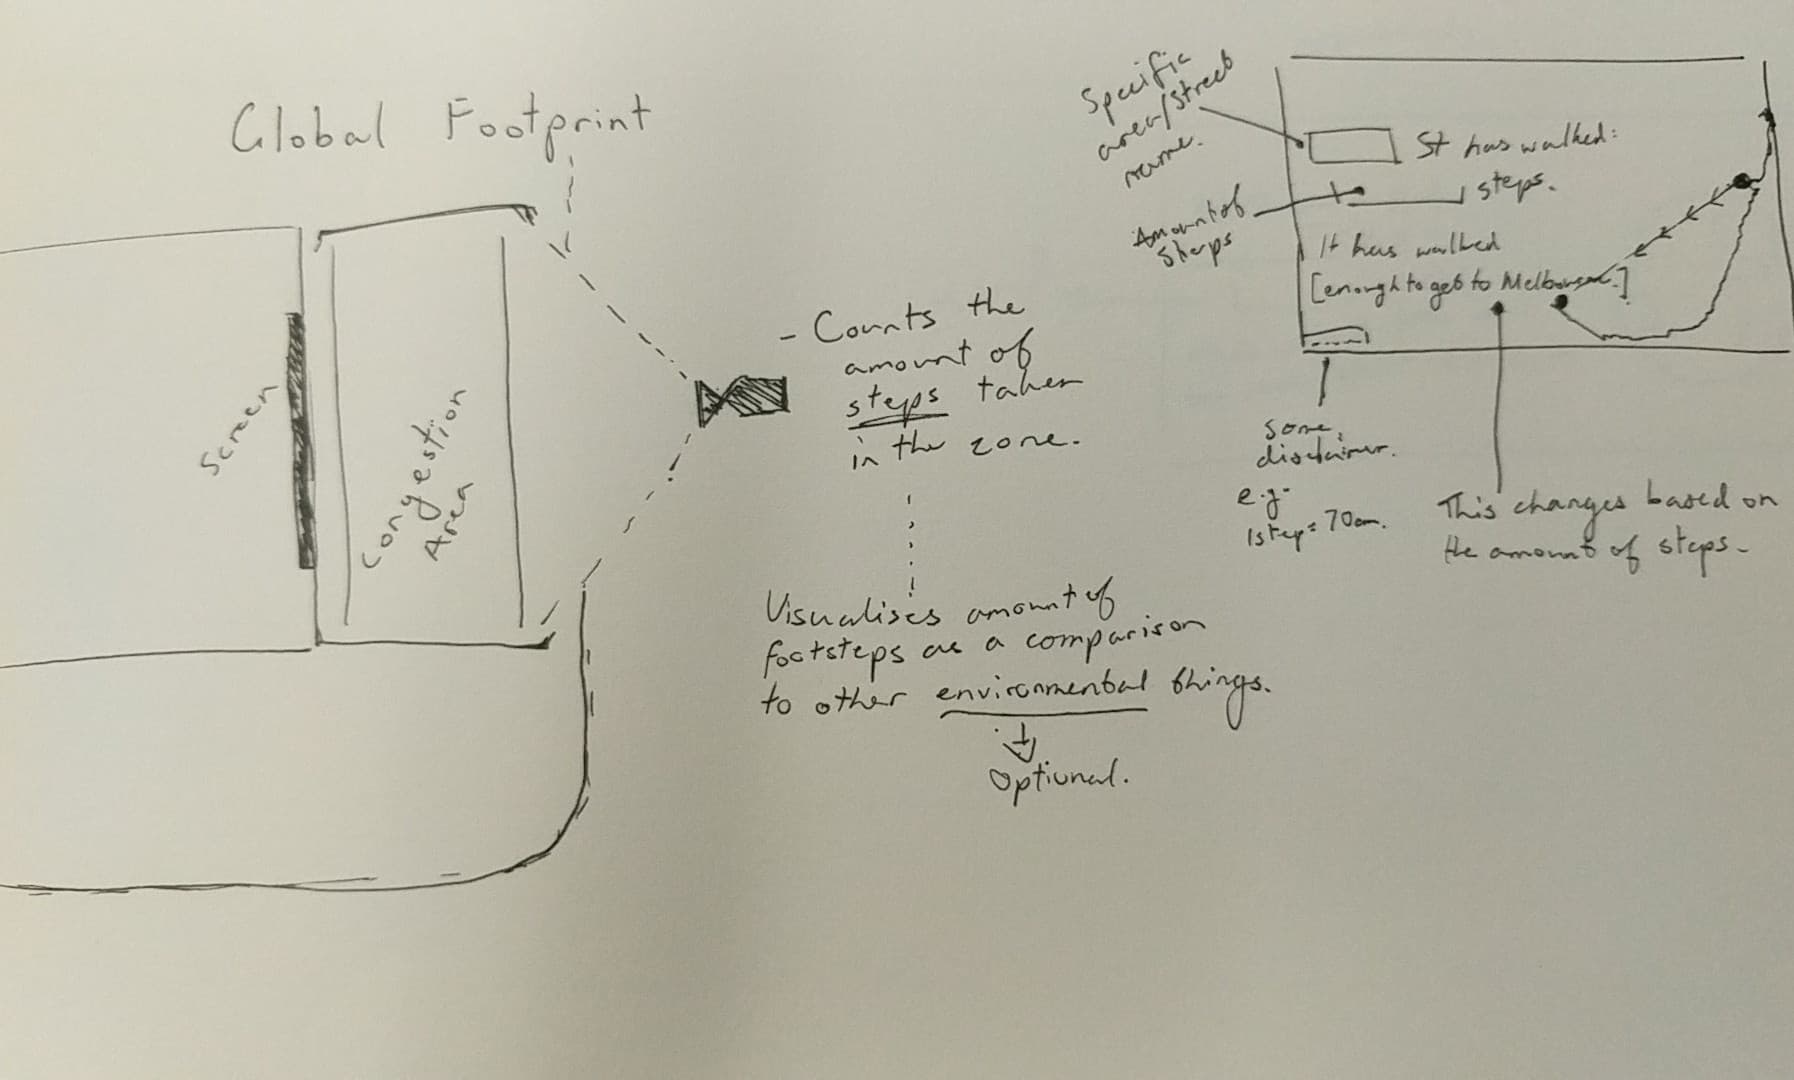 Global Footprint
Screen
Congestion
Area
- Counts the
amount of
steps taken
in the zone.
Visualises amount of
footsteps as a comparison
to other environmental things.
Optional.
Specific
area/street
name.
Amount of
Steps
St has walked:
steps.
It has walked
[enough to get to Melbourne.]
Some
disclaimer.
e.g.
1 step = 70cm.
This changes based on
the amount of steps.